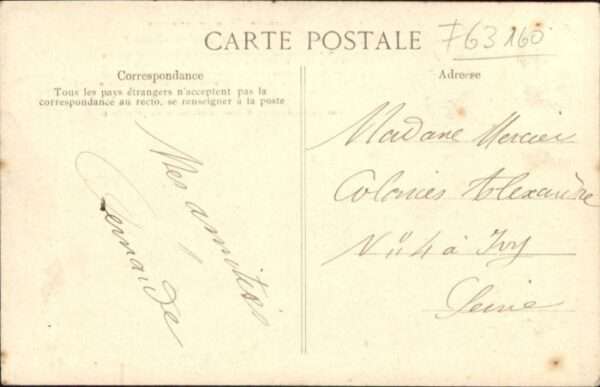 CARTE POSTALE
F63160
Correspondance
Tous les pays étrangers n'acceptent pas la
correspondance au recto, se renseigner à la poste
Adresse
Mes amitiés
Fernande
Madame Mercier
Colonies Alexandre
N° 4 à Ivry
Seine